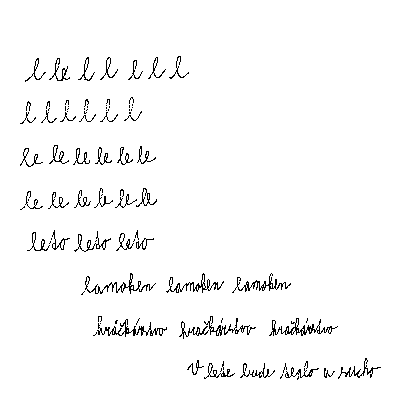 l le l l l l l
l l l l l l
le le le le le le
le le le le le le
leto leto leto
lamoken lamoken lamoken
hračkárstvo hračkárstvo hračkárstvo
V lete bude teplo a sucho